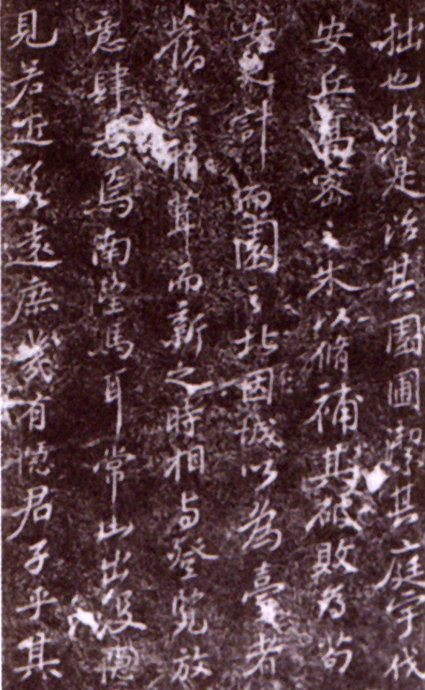 拙也於是治其園圃潔其庭宇伐
安丘高密之木以脩補其破敗為苟
之計而園之北因城以為臺者
舊矣稍葺而新之時相与登覽放
意肆志焉南望馬耳常山出没隱
見若近若遠庶幾有隱君子乎其